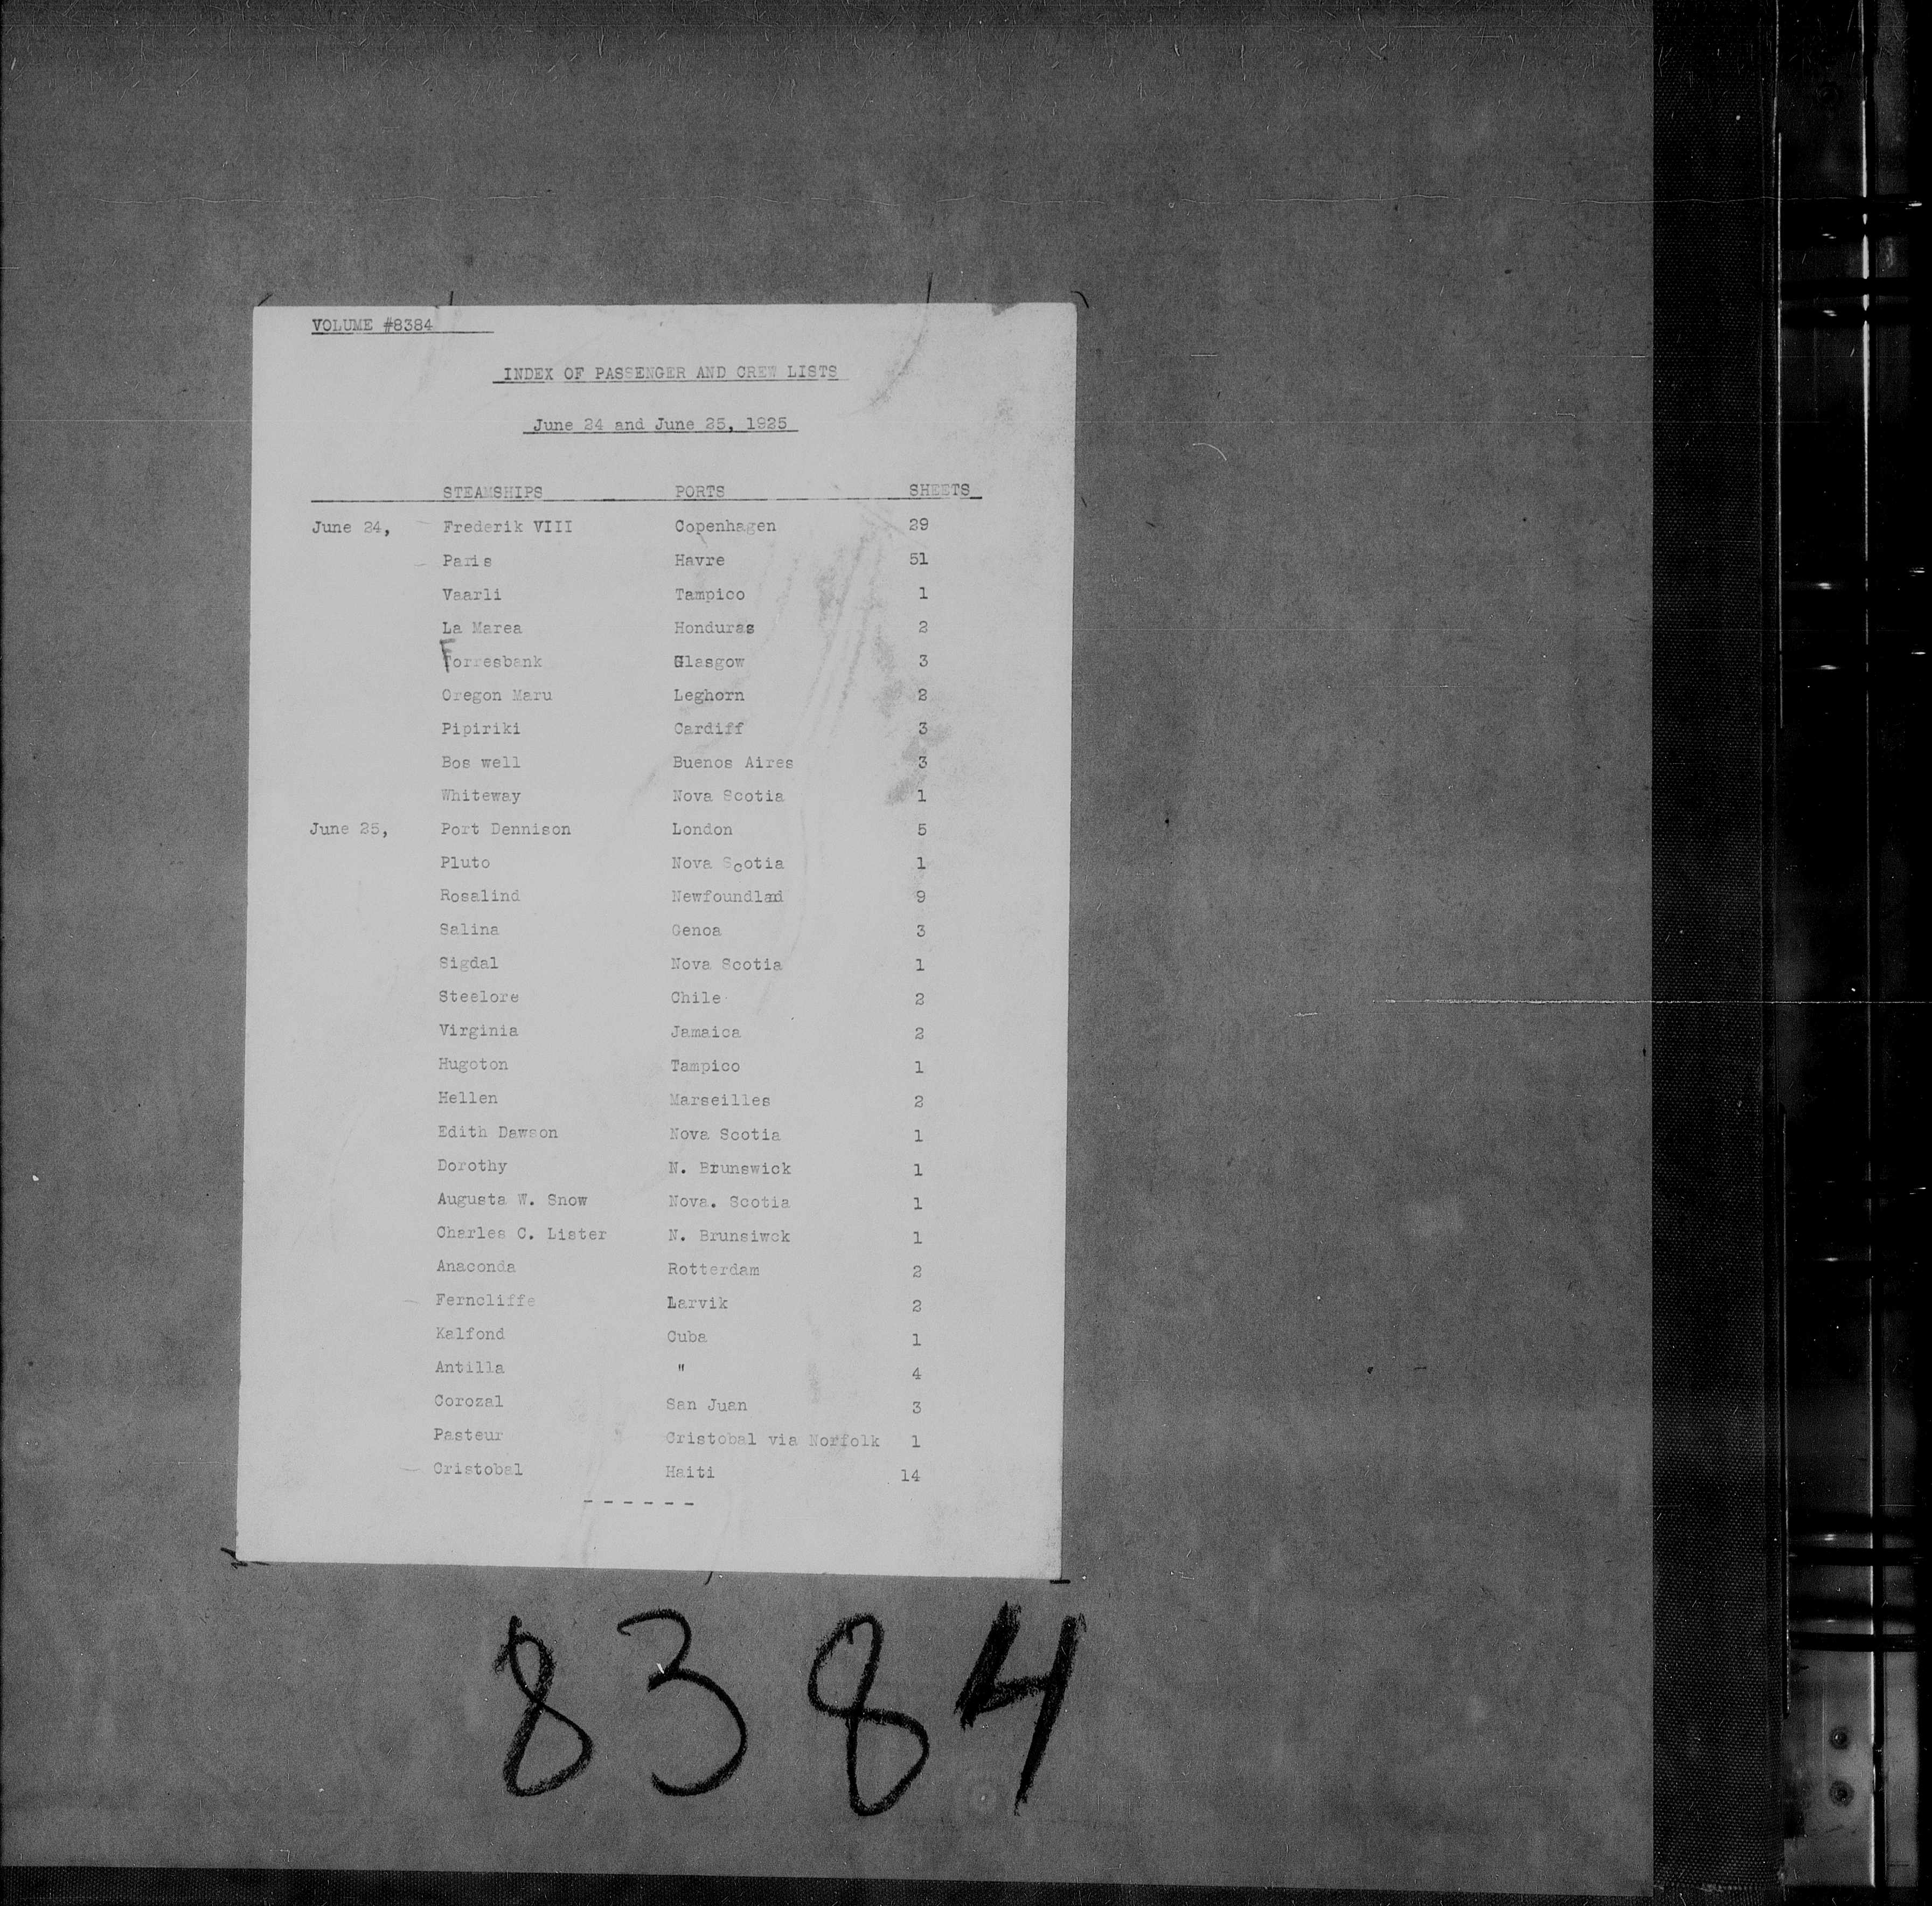 VOLUME #8384
INDEX OF PASSENGER AND CREW LISTS
June 24 and June 25, 1925
STEAMSHIPS PORTS SHEETS
June 24, Frederik VIII Copenhagen 29
Paris Havre 51
Vaarli Tampico 1
La Marea Honduras 2
Forresbank Glasgow 3
Oregon Maru Leghorn 2
Pipiriki Cardiff 3
Bos well Buenos Aires 3
Whiteway Nova Scotia 1
June 25, Port Dennison London 5
Pluto Nova Scotia 1
Rosalind Newfoundlad 9
Salina Genoa 3
Sigdal Nova Scotia 1
Steelore Chile 2
Virginia Jamaica 2
Hugoton Tampico 1
Hellen Marseilles 2
Edith Dawson Nova Scotia 1
Dorothy N. Brunswick 1
Augusta W. Snow Nova. Scotia 1
Charles C. Lister N. Brunsiwck 1
Anaconda Rotterdam 2
Ferncliffe Larvik 2
Kalfond Cuba 1
Antilla " 4
Corozal San Juan 3
Pasteur Cristobal via Norfolk 1
Cristobal Haiti 14
- - - - - -
8384